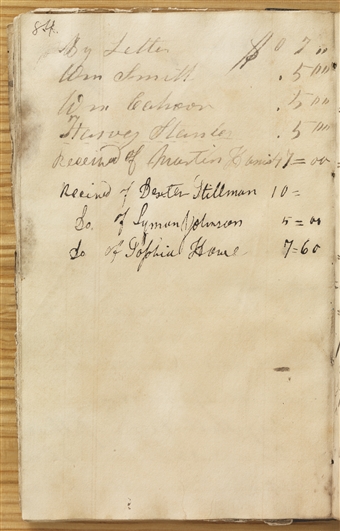 84.
By Letter $ 0 7 "
Wm Smith .5 00
Wm Cahoon .5 00
Harvey .5 00
Received of Martin 17=00
Recind of Dexter Stillman 10=
Do. of Lyman Johnson 5=00
Do of Sophia Howe 7=60